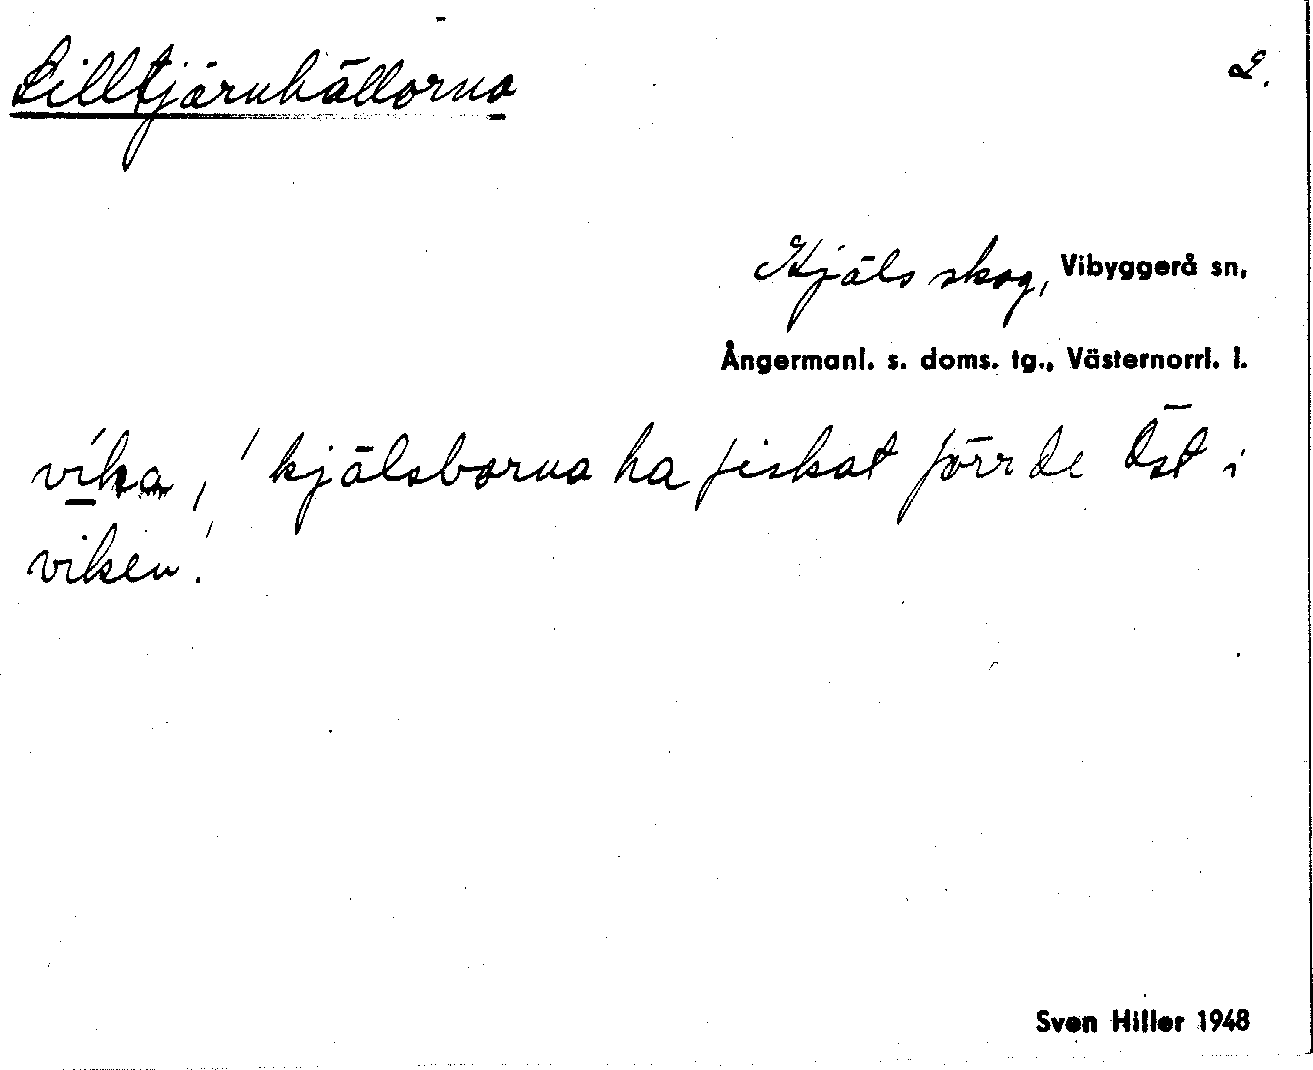 Lilltjärnhällorna
2.
Kjäls skog, Vibyggerå sn,
Ångermanl. s. doms. tg., Västernorrl. l.
vika, ' kjälsborna ha fiskat förr de Öst i
viken.'
Sven Hiller 1948